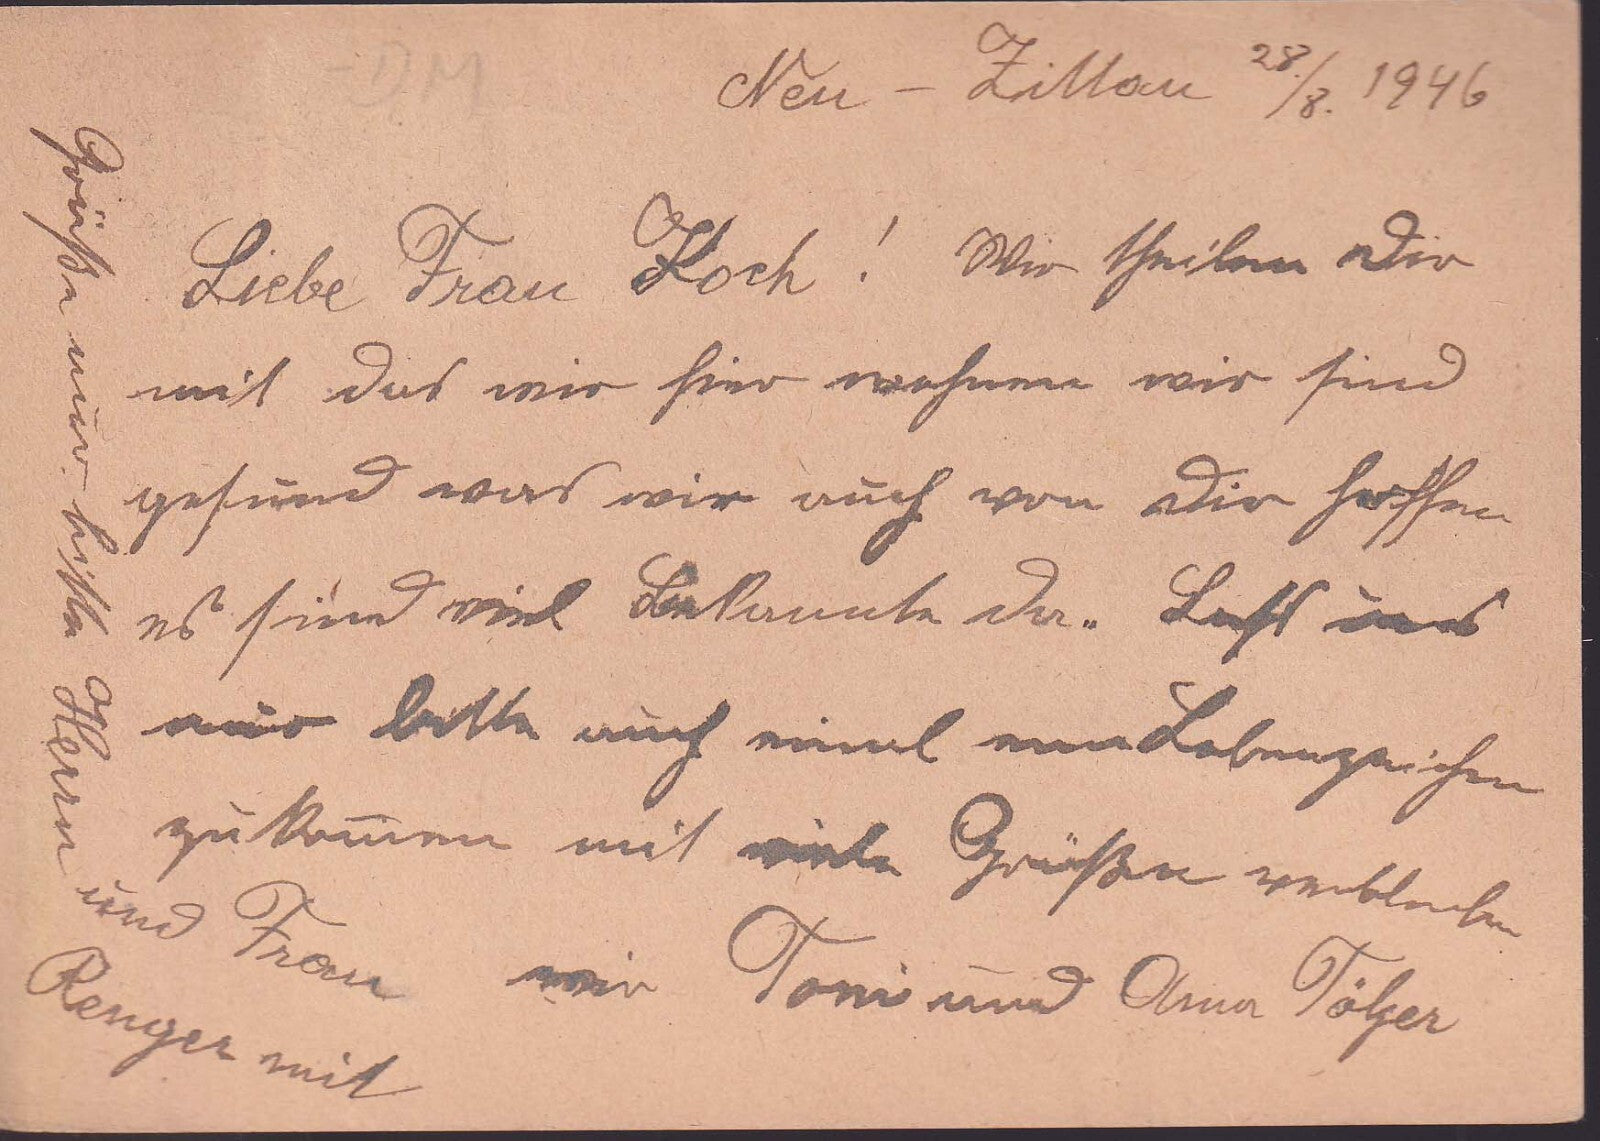 Neu – Zittau 28./8. 1946
Liebe Frau Koch! Wir theilen Dir
mit das wir hier wohnen wir sind
gesund was wir auch von Dir hoffen
es sind viel Bekannte da. Laßt uns
nur bitte auch einmal ein Lebenzeichen
zukom̄en mit viele Grüßen verbleiben
wir Toni und Anna Tölzer
Grüße nur bitte Herrn
und Frau
Renger mit